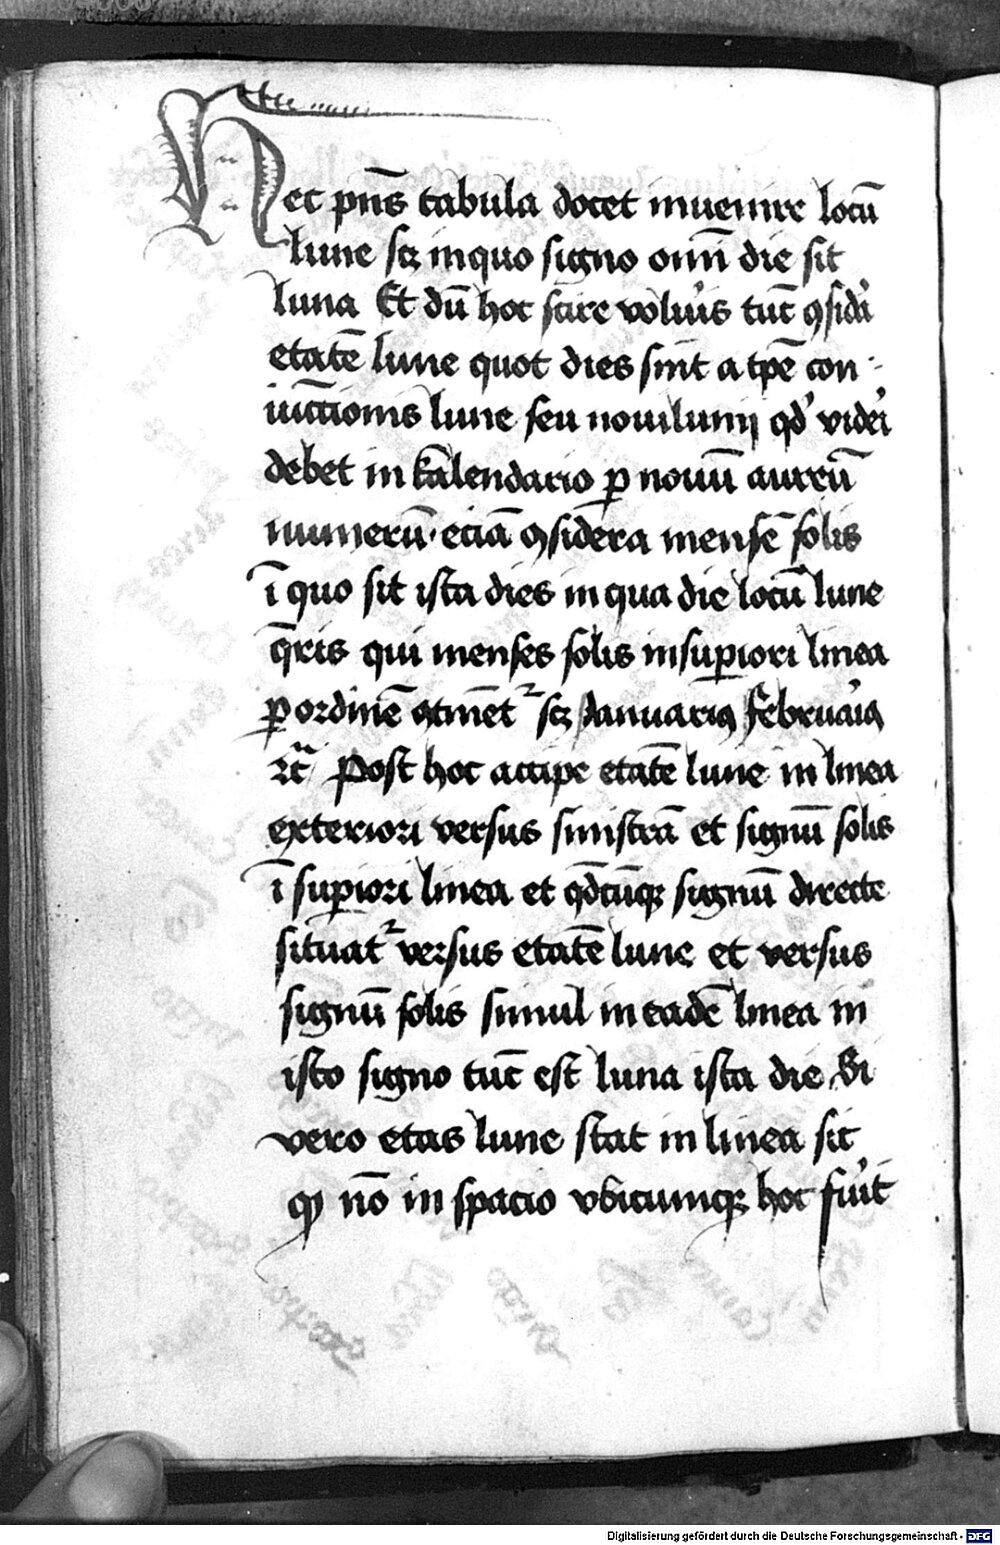 Hec pn̄s tabula docet inuenire locū
lune scꝫ inquo signo om̄i die sit
luna Et dū hoc scire volu'is tūc ꝯsid'a
etatē lune quot dies sint a tp̄e con
iūctionis lune seu nouilunij qd' vid'i
debet in kalendario p nouū aureū
numerū · eciā ꝯsidera mensē solis
ī quo sit ista dies in qua die locū lune
q̄ris qui menses solis insuꝑiori linea
ꝑ ordinē ꝯtinēt᷑ scꝫ Januariꝰ februariꝰ
ꝛc̄ Post hoc accipe etatē lune in linea
exteriori versus sinistrā et signū solis
ī suꝑiori linea et qd̄cūqꝫ signū directe
situat᷑ versus etatē lune et versus
signū solis simul in eadē linea in
isto signo tūc est luna ista die Si
vero etas lune stat in linea sit
qꝫ nō in spacio vbicumqꝫ hoc fu'it
Digitalisierung gefördert durch die Deutsche Forschungsgemeinschaft - DFG